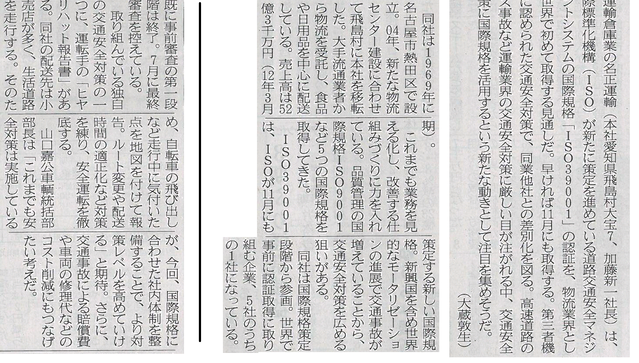 運輸倉庫業の名正運輸（本社愛知県飛島村大宝7、加藤新一社長）は、
際標準化機構（ISO）が新たに策定を進めている道路交通安全マネジ
ントシステムの国際規格「ISO39001」の認証を、物流業界とし
世界で初めて取得する見通しだ。早ければ11月にも取得する。第三者機
に認められた交通安全対策で、同業他社との差別化を図る。高速道路の
ス事故など運輸業界の交通安全対策に厳しい目が注がれる中、交通安全
策に国際規格を活用するという新たな動きとして注目を集めそうだ。
（大蔵敦生）
同社は1969年に
名古屋市熱田区で設
立。04年、新たな物流
センター建設に合わせ
て飛島村に本社を移転
した。大手流通業者か
ら物流を受託し、食品
や日用品を中心に配送
している。売上高は52
億3千万円（12年3月
期）。
これまでも業務を見
える化し、改善する仕
組みづくりに力を入れ
ている。品質管理の国
際規格ISO9001
など5つの国際規格を
取得してきた。
ISO39001
は、ISOが11月にも
策定する新しい国際規
格。新興国を含め世界
的なモータリゼーショ
ンの進展で交通事故が
増えていることから、
交通安全対策を広める
狙いがある。
同社は国際規格策定
段階から参画。世界で
事前に認証取得に取り
組む企業、5社のうち
の1社になっている。
既に事前審査の第一段
階は終了。7月に最終
審査を控えている。
取り組んでいる独自
の交通安全対策の一
つに、運転手の「ヒヤ
リハット報告書」があ
る。同社の配送先は小
売店が多く、生活道路
を走行する。そのた
め、自転車の飛び出し
など走行中に気付いた
点を地図を付けて報
告。ルート変更や配送
時間の適正化など対策
を練り、安全運転を徹
底する。
山口嘉公車輌統括部
部長は「これまでも安
全対策は実施している
が、今回、国際規格に
合わせた社内体制を整
備することで、より対
策レベルを高めていけ
る」と期待。さらに、
交通事故による賠償費
や車両の修理代などの
コスト削減にもつなげ
たい考えだ。